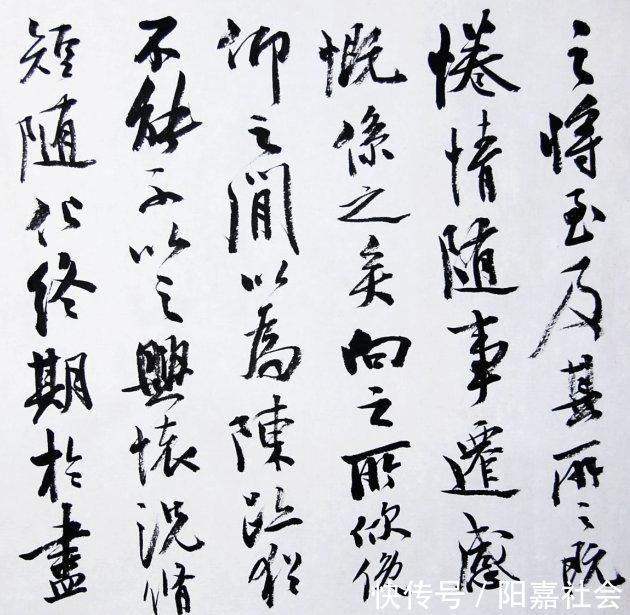 之將至及其所之既
惓情随事遷感
慨係之矣向之所欣俛
仰之間以為陳跡猶
不能不以之興懷況脩
短随化終期於盡
快传号 / 阳嘉社会